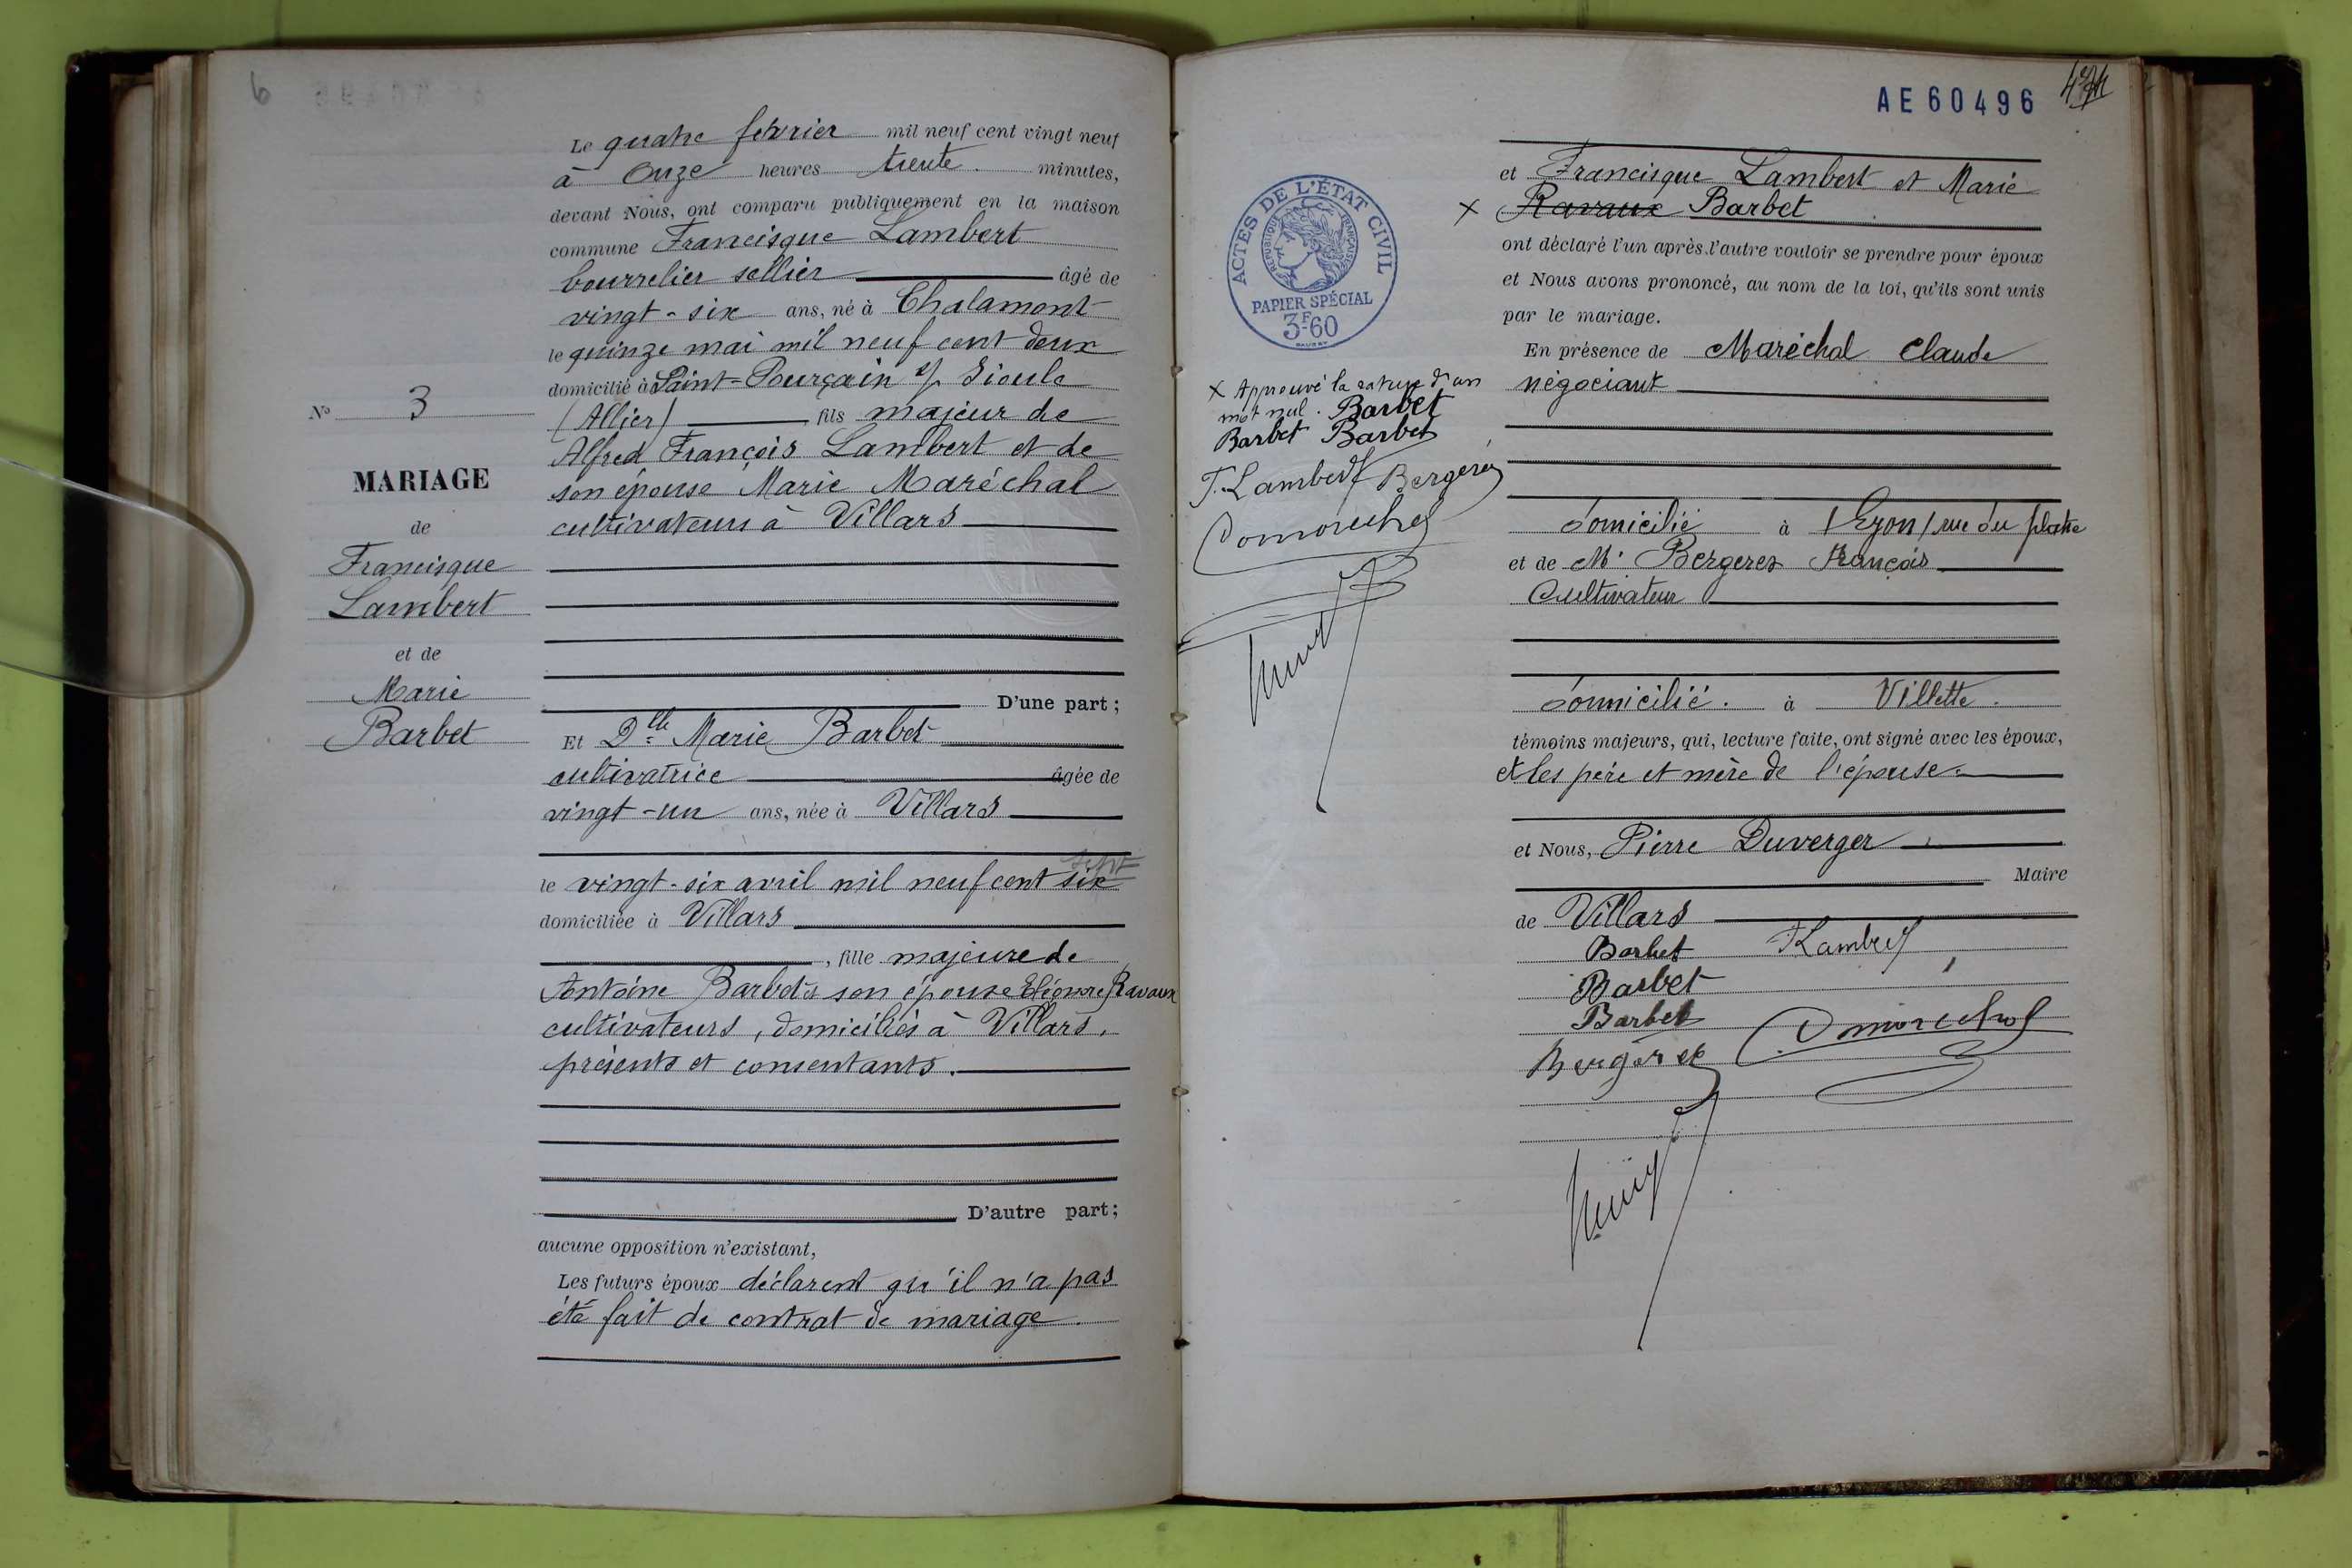 Le quatre février mil neuf cent vingt neuf
à Onze heures trente minutes,
devant Nous, ont comparu publiquement en la maison
commune Francisque Lambert
bourrelier sellier âgé de
vingt-six ans, né à Chalamont
le quinze mai mil neuf cent deux
domicilié à Saint-Pourçain s/ Sioule
(Allier) fils majeur de
Alfred François Lambert et de
son épouse Marie Maréchal
cultivateurs à Villars
No 3
MARIAGE
de
Francisque
Lambert
et de
Marie
Barbet
D'une part ;
Et Dlle Marie Barbet
cultivatrice âgée de
vingt-un ans, née à Villars
sept
le vingt-six avril mil neuf cent six
domiciliée à Villars
, fille majeure de
Antoine Barbet et son épouse Eléonore Ravaux
cultivateurs, domiciliés à Villars,
présents et consentants.
D'autre part ;
aucune opposition n'existant,
Les futurs époux déclarent qu'il n'a pas
été fait de contrat de mariage.
AE 60496
et Francisque Lambert et Marie
x Ravaux Barbet
ont déclaré l'un après l'autre vouloir se prendre pour époux
et Nous avons prononcé, au nom de la loi, qu'ils sont unis
par le mariage.
En présence de Maréchal Claude
négociant
domicilié à Lyon, rue du plâtre
et de Mr Bergeret François
Cultivateur
domicilié. à Villette.
témoins majeurs, qui, lecture faite, ont signé avec les époux,
et les père et mère de l'épouse.
et Nous, Pierre Duverger
Maire
de Villars
Barbet F Lambert
Barbet
Barbet
ACTES DE L'ÉTAT CIVIL
RÉPUBLIQUE FRANÇAISE
PAPIER SPÉCIAL
3F60
x Approuvé la rature d'un
mot nul. Barbet
Barbet Barbet
F. Lambert